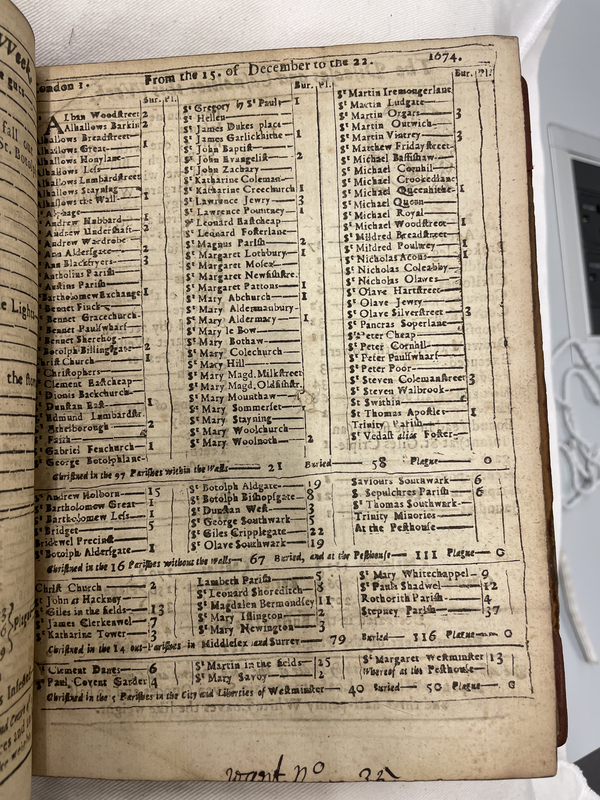 London 1. From the 15. of December to the 22. 1674.
Bur. Pl.
Alban Woodstreet 2
Alhallows Barkin 2
Alhallows Breadstreet
Alhallows Great 1
Alhallows Honylane
Alhallows Less
Alhallows Lumbardstreet
Alhallows Stayning
Alhallows the Wall 1
Andrew Hubbard 1
Andrew Undershaft 2
Andrew Wardrobe
Ann Aldersgate 2
Ann Blackfryers 3
Antholius Parish
Austins Parish
Bartholomew Exchange 1
Bennet Finck
Bennet Gracechurch
Bennet Paulswharf
Bennet Sherehog
Botolph Billingsgate 2
Christ Church 1
Christophers
Clement Eastcheap
Dionis Backchurch
Dunstan East 1
Edmund Lumbardstr.
Ethelborough 2
Faith
Gabriel Fenchurch 1
George Botolphlane
Bur. Pl.
St Gregory by St Pauls 1
St Hellen
St James Dukes place
St James Garlickhithe 1
St John Baptist
St John Evangelist 2
St John Zachary
St Katharine Coleman
St Katharine Creechurch 1
St Lawrence Jewry 3
St Lawrence Pountney 1
St Leonard Eastcheap
St Leonard Fosterlane
St Magnus Parish 2
St Margaret Lothbury 1
St Margaret Moses
St Margaret Newfishstre.
St Margaret Pattons 1
St Mary Abchurch 1
St Mary Aldermanbury
St Mary Aldermary 1
St Mary le Bow
St Mary Bothaw
St Mary Colechurch
St Mary Hill
St Mary Magd. Milkstreet
St Mary Magd. Oldfishstr.
St Mary Mounthaw
St Mary Sommerset 1
St Mary Stayning
St Mary Woolchurch
St Mary Woolnoth 2
Bur. Pl.
St Martin Iremongerlane
St Martin Ludgate
St Martin Orgars 3
St Martin Outwich
St Martin Vintrey 3
St Matthew Fridaystreet
St Michael Bassishaw
St Michael Cornhil
St Michael Crookedlane
St Michael Queenhithe 1
St Michael Quern
St Michael Royal
St Michael Woodstreet 1
St Mildred Breadstreet
St Mildred Poultrey 1
St Nicholas Acons 1
St Nicholas Coleabby
St Nicholas Olaves
St Olave Hartstreet
St Olave Jewry
St Olave Silverstreet 3
St Pancras Soperlane
St Peter Cheap
St Peter Cornhil
St Peter Paulswharf
St Peter Poor
St Steven Colemanstreet 3
St Steven Walbrook
St Swithin
St Thomas Apostles 1
Trinity Parish
St Vedast alias Foster
Christned in the 97 Parishes within the Walls 21 Buried 58 Plague 0
St Andrew Holborn 15
St Bartholomew Great 1
St Bartholomew Less 1
St Bridget 5
Bridewel Precinct
St Botolph Aldersgate 1
St Botolph Aldgate 19
St Botolph Bishopsgate 8
St Dunstan West 3
St George Southwark 5
St Giles Cripplegate 22
St Olave Southwark 19
Saviours Southwark 6
St Sepulchres Parish 6
St Thomas Southwark
Trinity Minories
At the Pesthouse
Christned in the 16 Parishes without the Walls 67 Buried, and at the Pesthouse 111 Plague 0
Christ Church 2
St John at Hackney
St Giles in the fields 13
St James Clerkenwel 7
St Katharine Tower 3
Lambeth Parish 5
St Leonard Shoreditch 8
St Magdalen Bermondsey 11
St Mary Islington 2
St Mary Newington 3
St Mary Whitechappel 9
St Pauls Shadwel 12
Rothorith Parish 4
Stepney Parish 37
Christned in the 14 out-Parishes in Middlesex and Surrey 79 Buried 116 Plague 0
St Clement Danes 6
St Paul Covent Garden 4
St Martin in the fields 25
St Mary Savoy 2
St Margaret Westminster 13
Whereof at the Pesthouse
Christned in the 5 Parishes in the City and Liberties of Westminster 40 Buried 50 Plague 0
want no